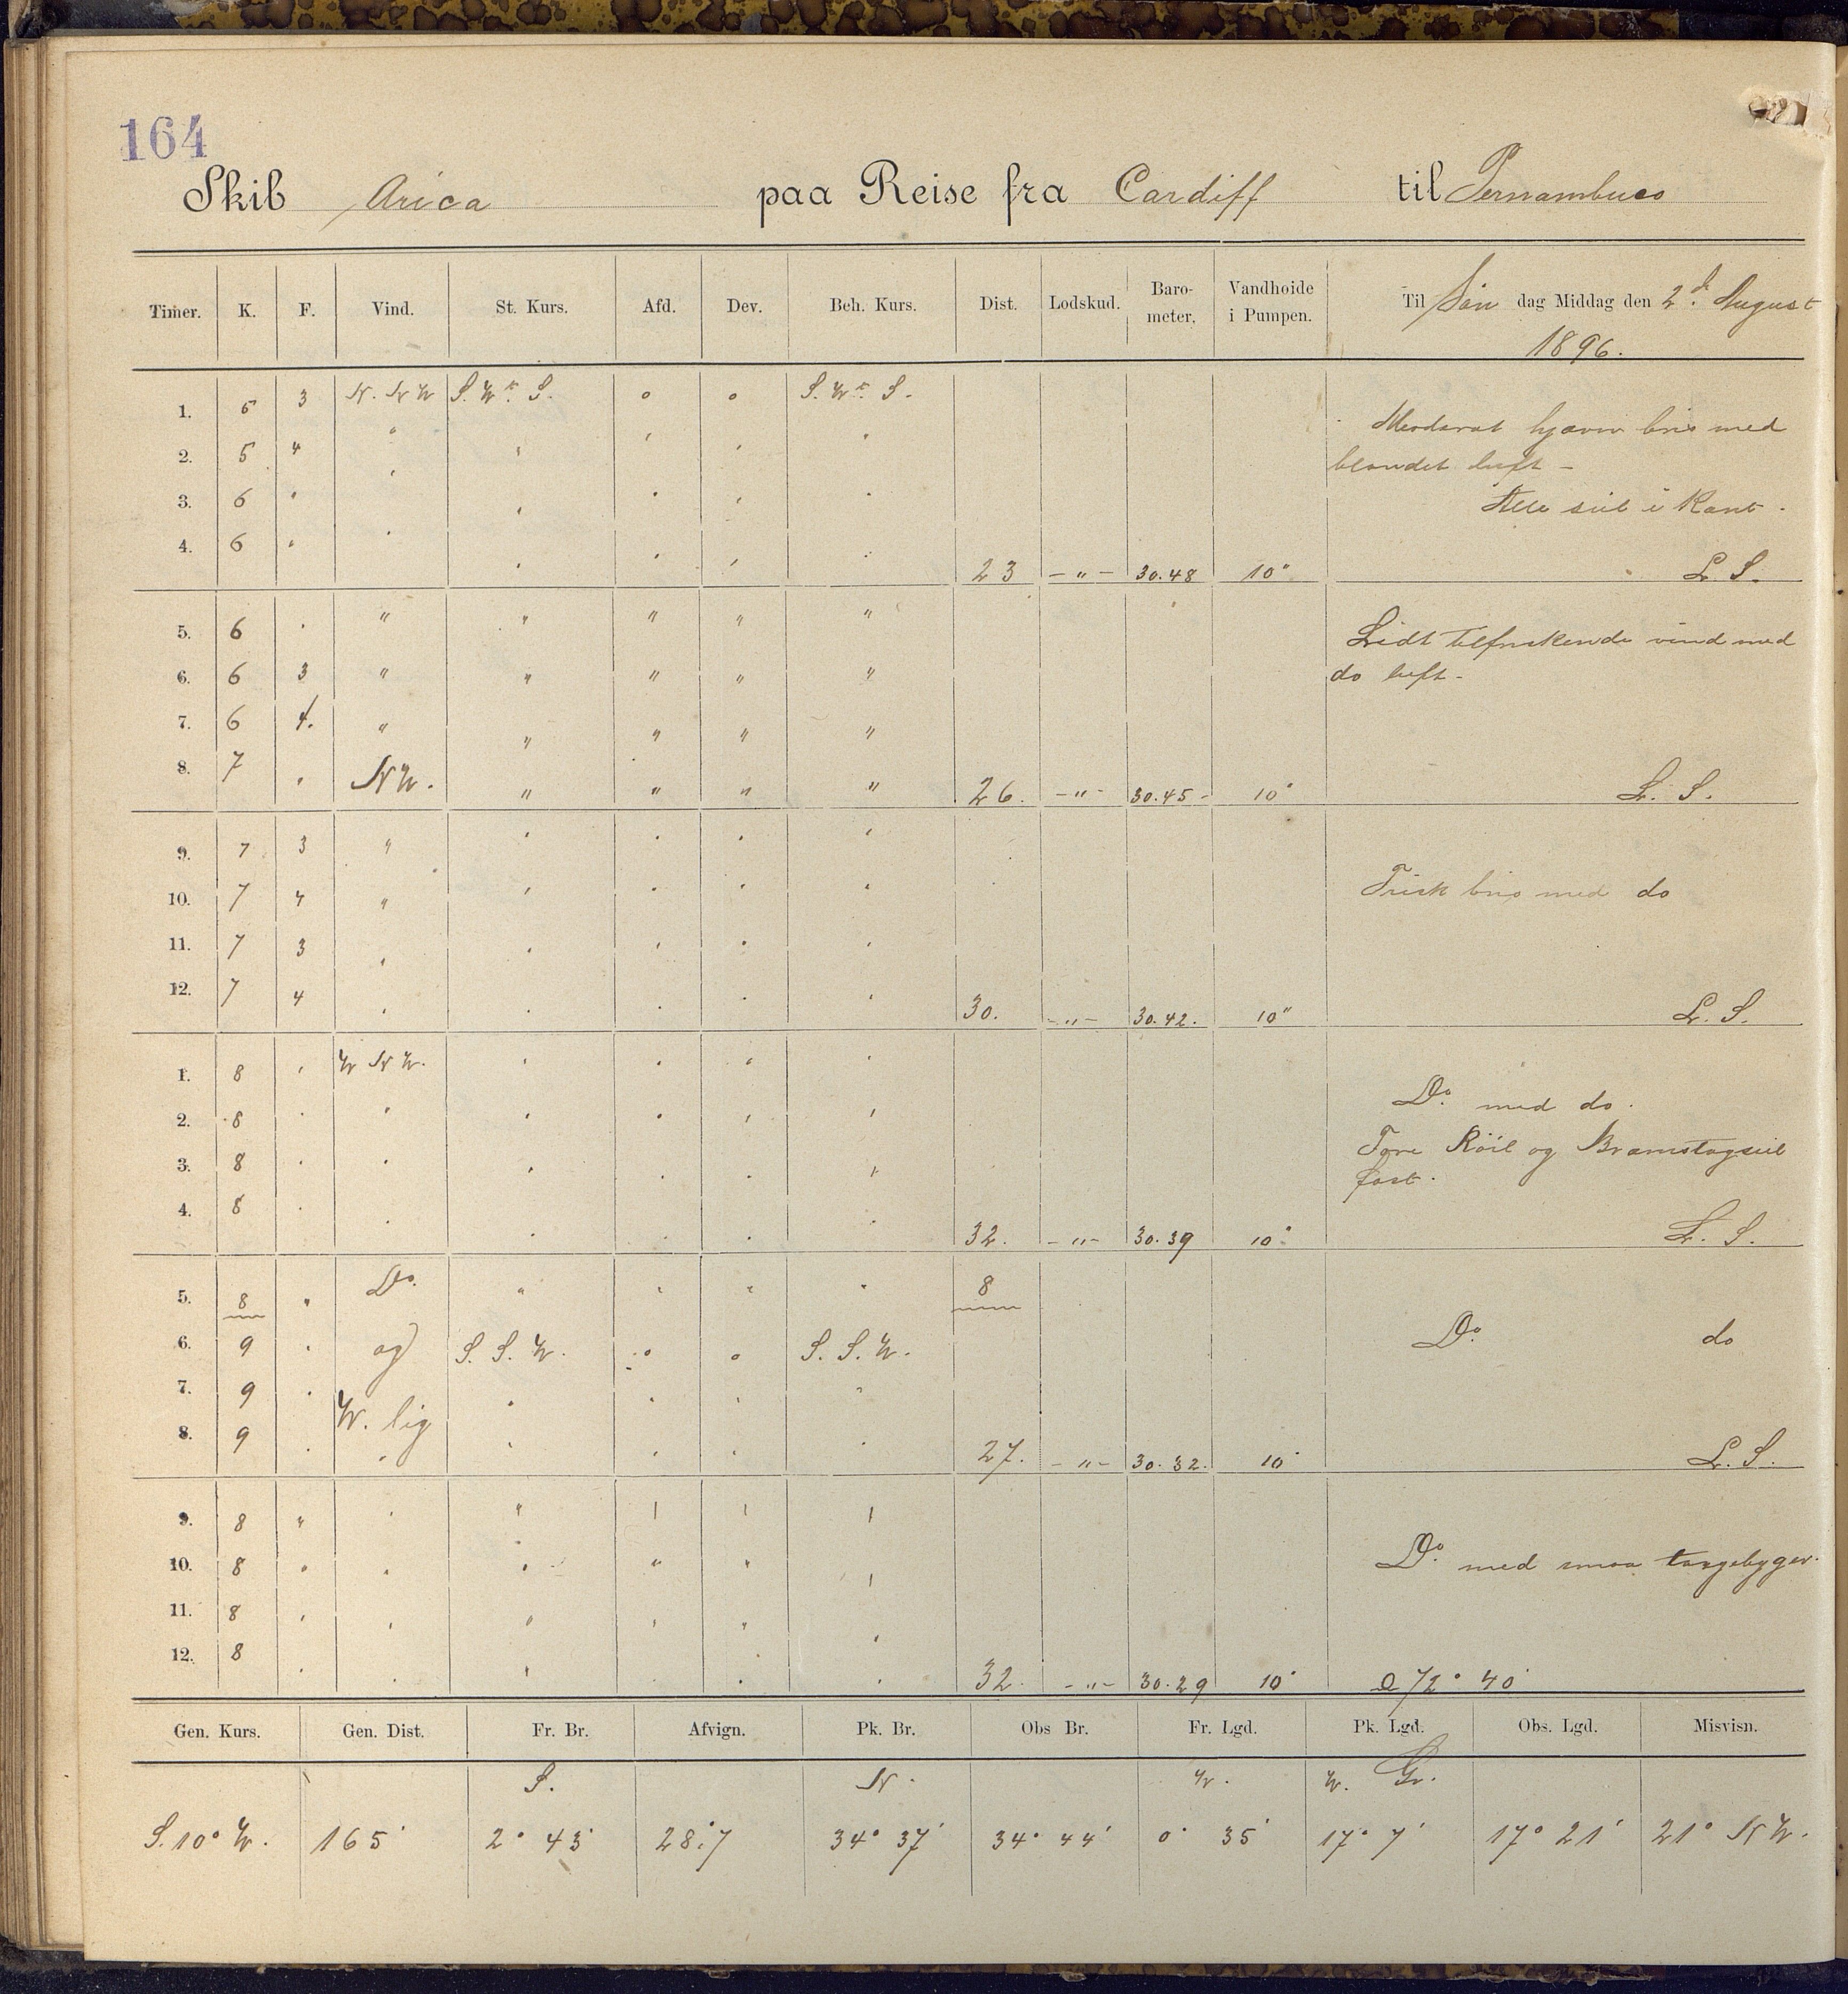 164
Skib Arica paa Reise fra Cardiff til Pernambuco
Timer. K. F. Vind. St. Kurs. Afd. Dev. Beh. Kurs. Dist. Lodskud. Barometer. Vandhøide i Pumpen. Til Søn dag Middag den 2d. August
1896.
1. 5 3 N. N W S. W t. S. o o S. W t. S.
Moderat bris med
2. 5 4 " " " " "
blandet luft -
3. 6 " " " " " "
Alle seil i Kant.
4. 6 " " " " " " 23 - " - 30.48 10" L. S.
5. 6 " " " " " "
Lidt tilfriskende vind med
6. 6 3 " " " " "
do luft -
7. 6 4. " " " " "
8. 7 " N W. " " " " 26. - " - 30.45 - 10" L. S.
9. 7 3 " " " " "
10. 7 4 " " " " "
Frisk bris med do
11. 7 3 " " " " "
12. 7 4 " " " " " 30. - " - 30.42. 10" L. S.
1. 8 " W N W. " " " "
Do. med do.
2. 8 " " " " " "
Røil og Bramstagseil
3. 8 " " " " " "
fast.
4. 8 " " " " " " 32. - " - 30.39 10" L. S.
5. 8 " Do. " " " " 8
6. 9 " og S. S. W. o o S. S. W.
Do. do
7. 9 " W. lig " " " "
8. 9 " " " " " " 27. - " - 30.32. 10" L. S.
9. 8 " " " " " "
10. 8 " " " " " "
Do. med smaa
11. 8 " " " " " "
12. 8 " " " " " " 32. - " - 30.29 10" 72° 40'
Gen. Kurs. Gen. Dist. Fr. Br. Afvign. Pk. Br. Obs Br. Fr. Lgd. Pk. Lgd. Obs. Lgd. Misvisn.
S. N. W. W. Gr.
S. 10° W. 165' 2° 43' 28.7 34° 37' 34° 44' 0° 35' 17° 7' 17° 21' 21° N W.